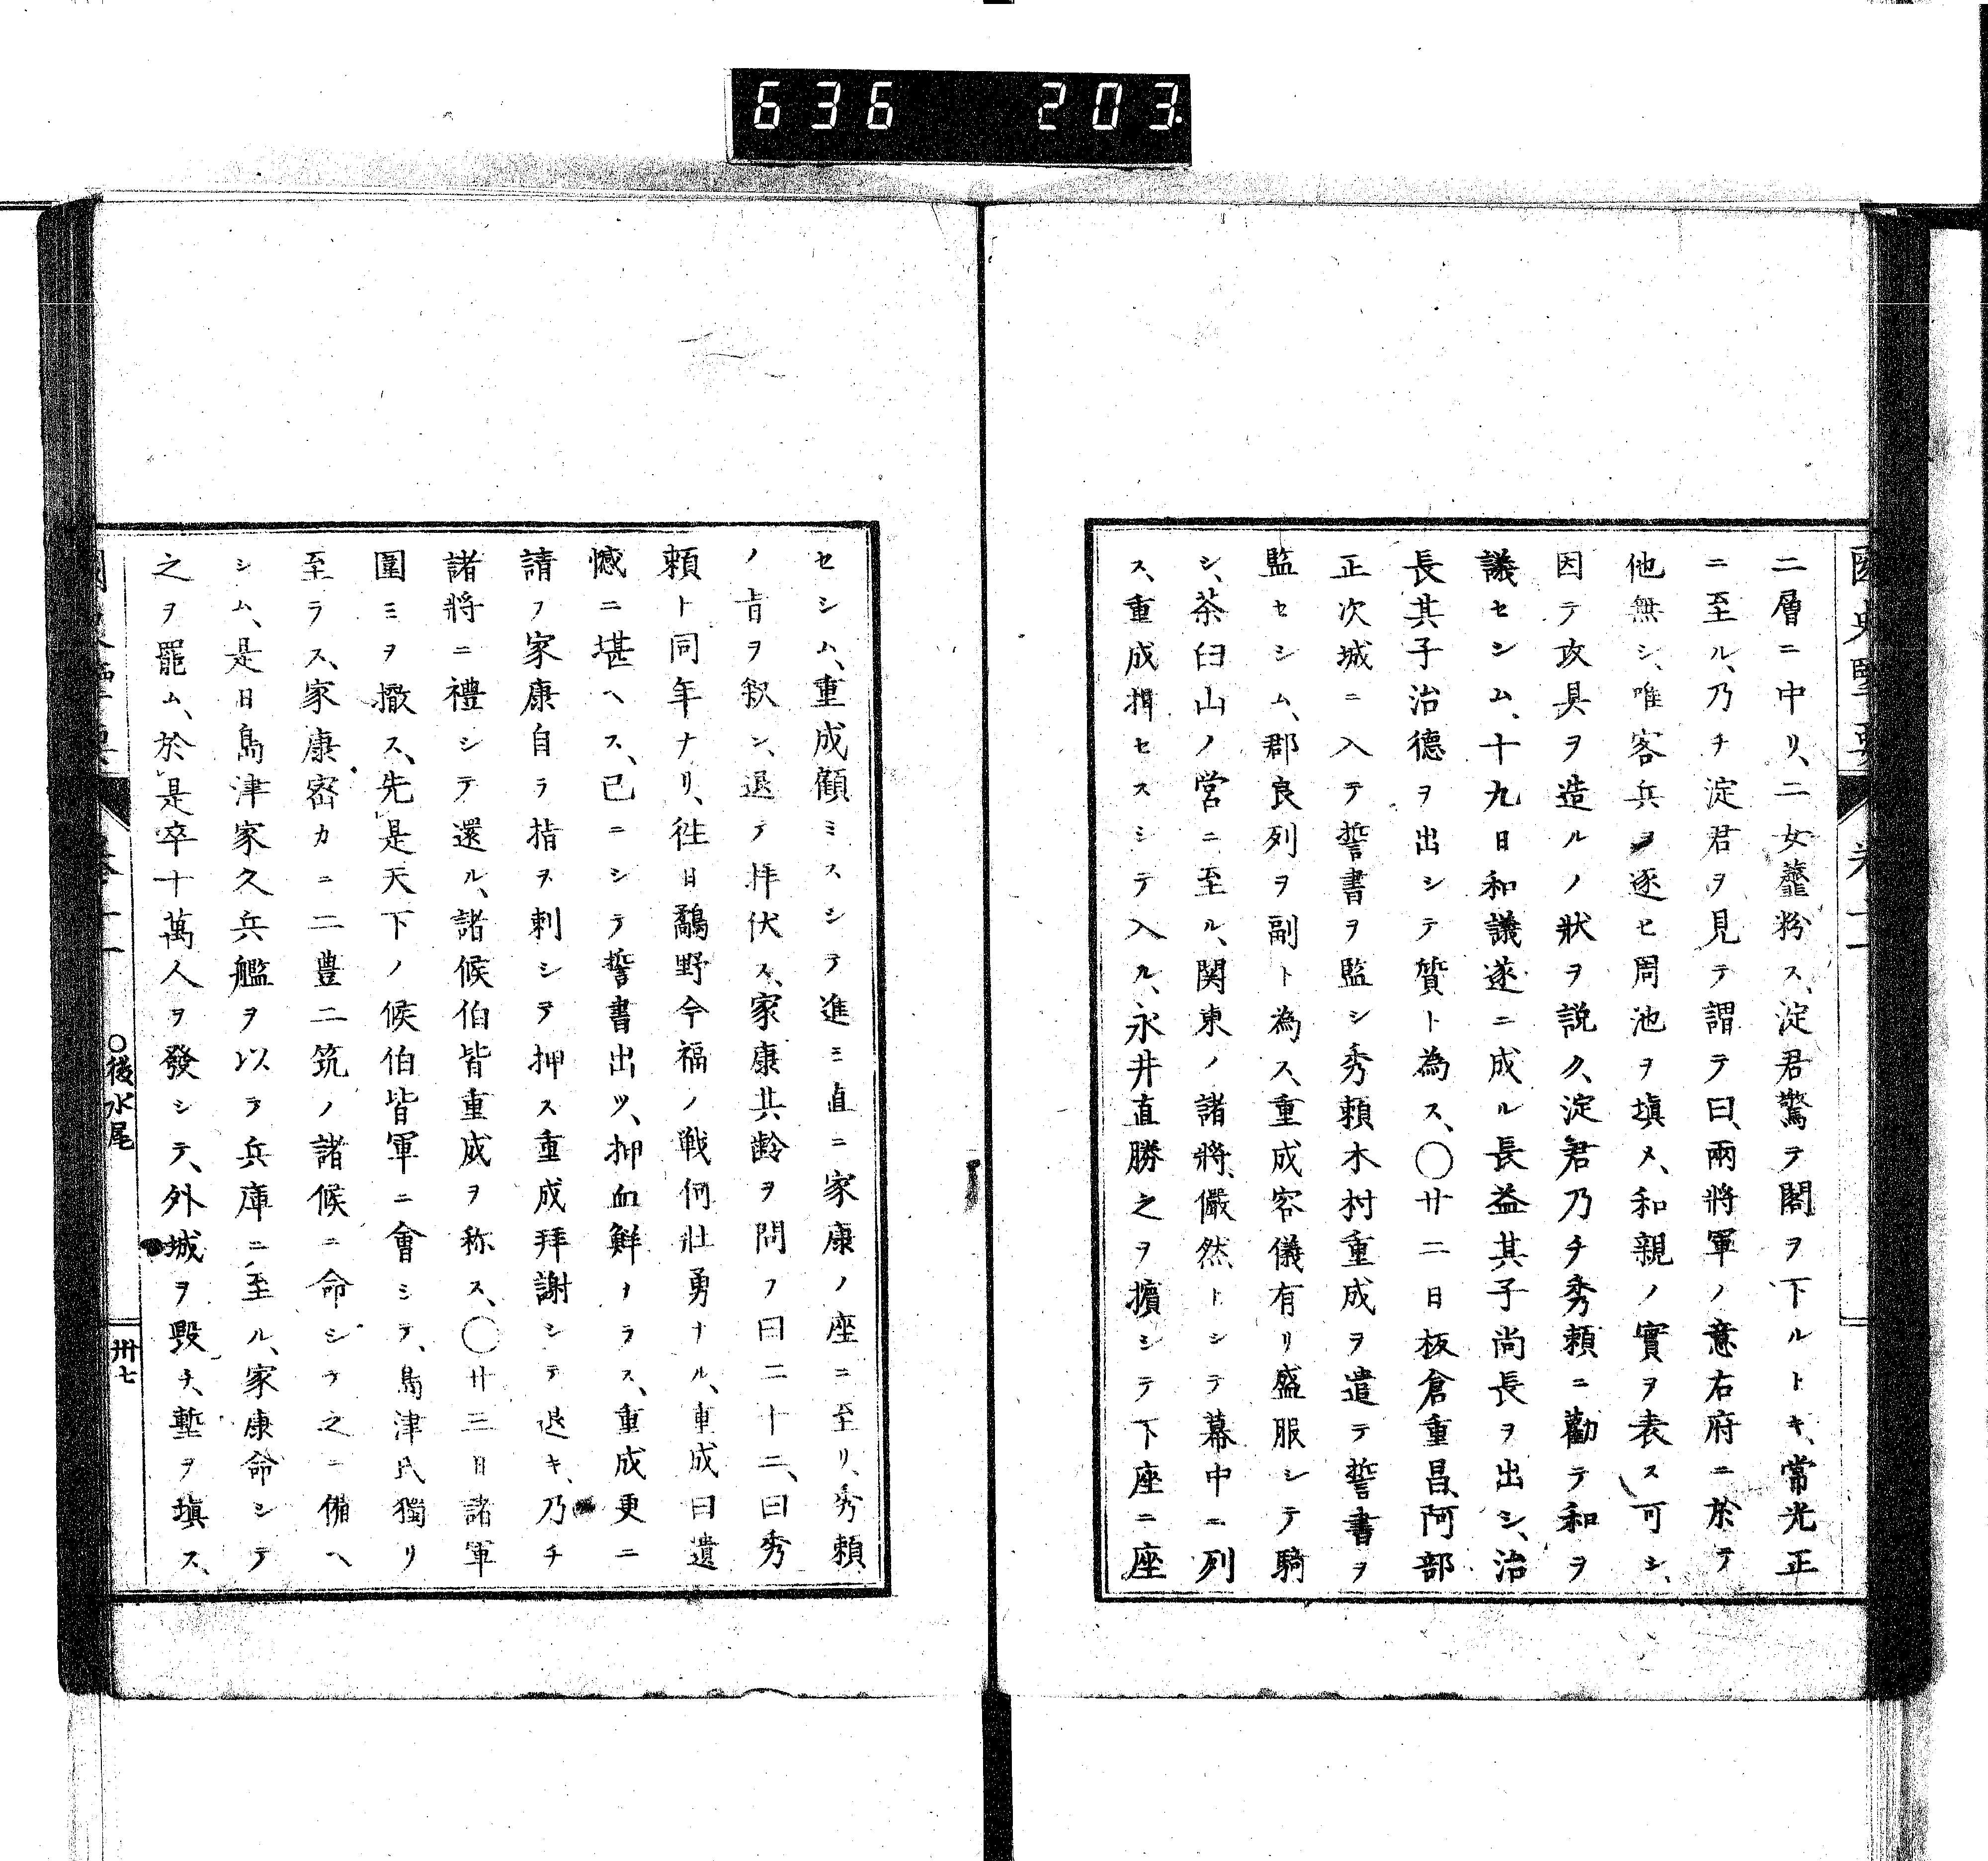 636 203
二層ニ中リ、二女虀粉ス、淀君驚ヲ閣ヲ下ルトキ、常光正
ニ至ル、乃チ淀君ヲ見テ謂テ曰、兩將軍ノ意右府ニ於テ
他無シ、唯客兵ヲ逐セ周池ヲ塡メ、和親ノ實ヲ表ス可シ、
因テ攻具ヲ造ルノ狀ヲ説ク、淀君乃チ秀頼ニ勸テ和ヲ
議セシム、十九日和議遂ニ成ル長益其子尚長ヲ出シ、治
長其子治德ヲ出シテ質ト為ス、〇廿二日板倉重昌、阿部
正次城ニ入テ誓書ヲ監シ秀頼木村重成ヲ遣テ誓書ヲ
監セシム、郡良列ヲ副ト為ス、重成容儀有リ盛服シテ騎
シ、茶臼山ノ営ニ至ル、関東ノ諸將、儼然トシテ幕中ニ列
ス、重成揖セスシテ入ル、永井直勝之ヲ擯シテ下座ニ座
セシム、重成顧ミスシテ進ミ直ニ家康ノ座ニ至リ、秀頼
ノ旨ヲ叙シ、退テ拝伏ス、家康其齢ヲ問フ曰二十二、曰秀
頼ト同年ナリ、徃日鷸野今福ノ戦何壮勇ナル、重成曰遺
憾ニ堪ヘス、已ニシテ誓書出ツ、押血鮮ナラス、重成更ニ
請フ家康自ラ指ヲ刺シテ押ス重成拜謝シテ退キ、乃チ
諸將ニ禮シテ還ル、諸候伯皆重成ヲ称ス、〇廿三日諸軍
圍ミヲ撤ス、先是天下ノ候伯皆軍ニ會シテ、島津氏獨リ
至ラス、家康密カニ二豊二筑ノ諸候ニ命シテ之ニ備ヘ
シム、是日島津家久兵艦ヲ以テ兵庫ニ至ル、家康命シテ
之ヲ罷ム、於是卒十萬人ヲ發シテ、外城ヲ毀チ、塹ヲ塡ス、
〇後水尾
卅七